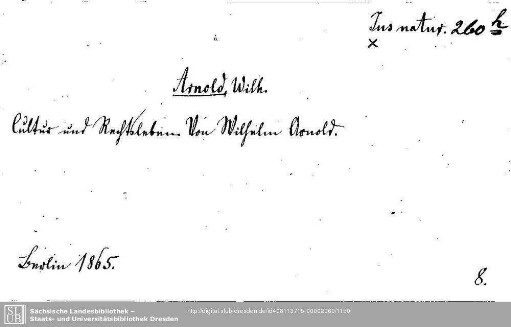 Jus natur. 260 h
x
Arnold, Wilh.
Cultur und Rechtsleben. Von Wilhelm Arnold.
Berlin 1865.
8.
SLUB
Sächsische Landesbibliothek –
Staats- und Universitätsbibliothek Dresden